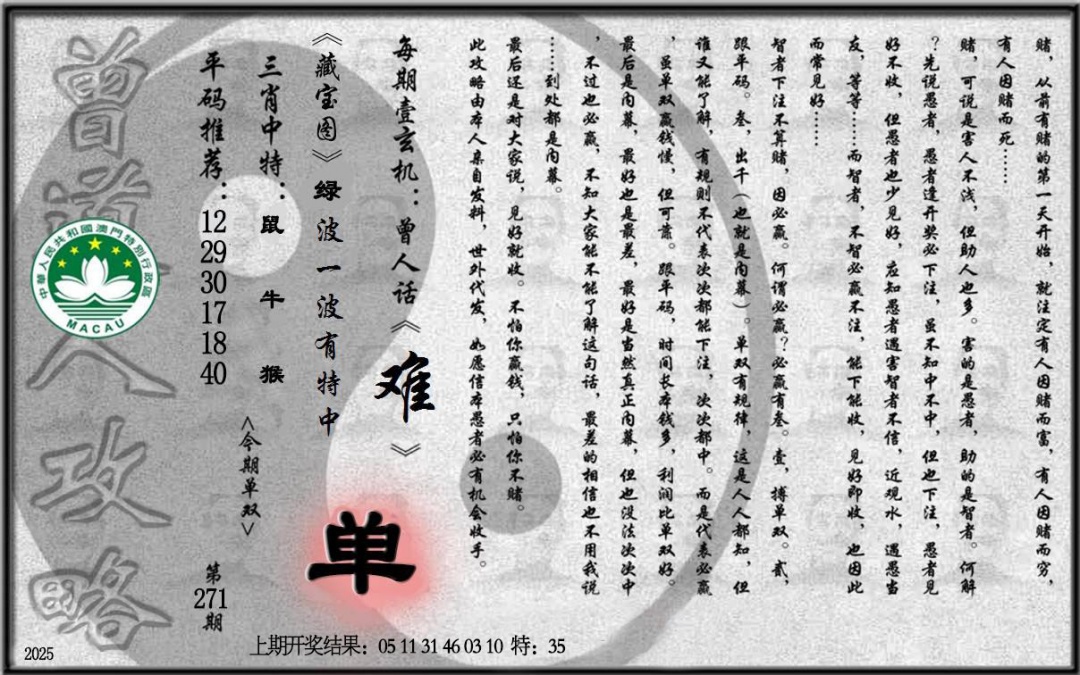 赌，从前有赌的第一天开始，就注定有人因赌而富，有人因赌而穷，
有人因赌而死……
赌，可说是害人不浅，但助人也多。害的是愚者，助的是智者。何解
？先说愚者，愚者逢开奖必下注，虽不知中不中，但也下注，愚者见
好不收，但愚者也少见好，应知愚者遇害智者不信，近观水，遇愚当
友，等等……而智者，不智必赢不注，能下能收，见好即收，也因此
而常见好……
智者下注不算赌，因必赢。何谓必赢？必赢有叁。壹，搏单双。贰，
跟平码。叁，出千（也就是内幕）。单双有规律，这是人人都知，但
谁又能了解，有规则不代表次次都能下注，次次都中。而是代表必赢
，虽单双赢钱慢，但可靠。跟平码，时间长本钱多，利润比单双好。
最后是内幕，最好也是最差，最好是当然真正内幕，但也没法次次中
，不过也必赢，不知大家能不能了解这句话，最差的相信也不用我说
……到处都是内幕。
最后还是对大家说，见好就收。不怕你赢钱，只怕你不赌。
此攻略由本人亲自发料，世外代发，如愿信本愚者必有机会收手。
每期壹玄机：曾人话《难》
《藏宝图》绿波一波有特中
单
三肖中特：鼠 牛 猴
<今期单双>
平码推荐：12 29 30 17 18 40
第271期
曾道人攻略
中華人民共和國澳門特別行政區
MACAU
上期开奖结果：05 11 31 46 03 10 特：35
2025